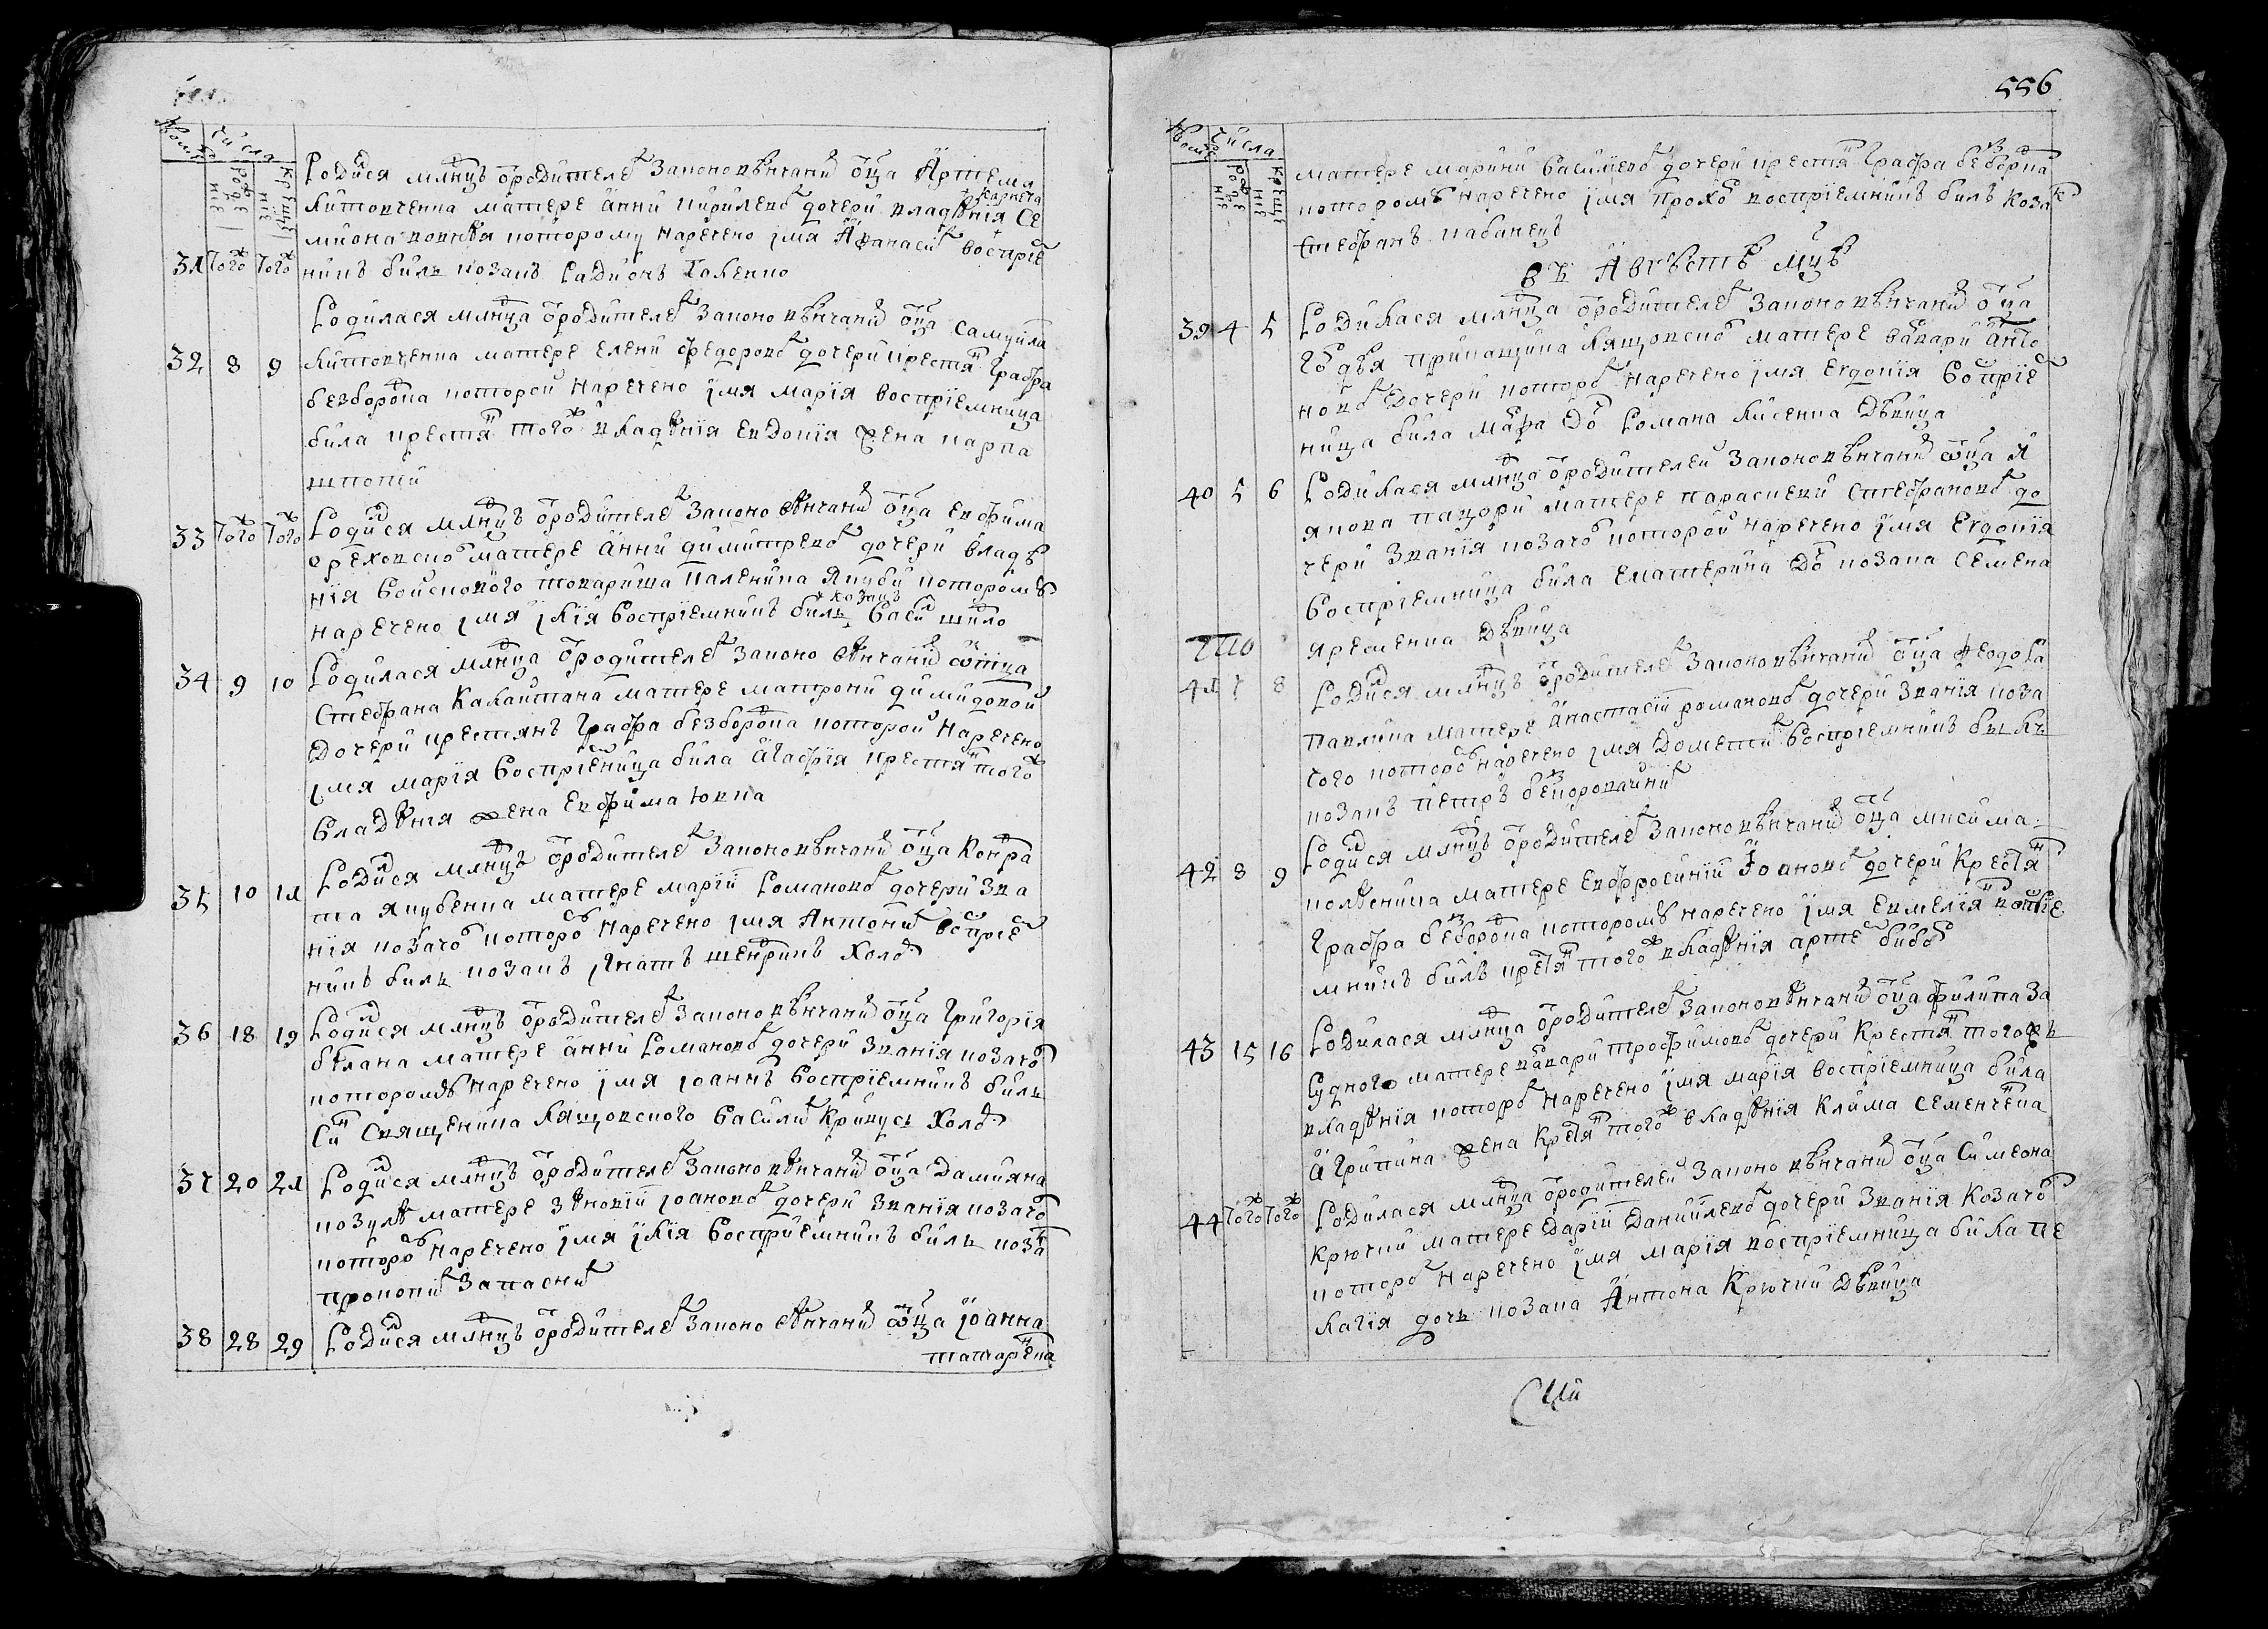 Числа
Рожде
ние
Креще
ние
Родися младнцъ о родителей законо вѣнчаний оца Артемя
Литовченка матере Анни Кирилевой дочери владѣнія Се
миона которому наречено имя Афанасій воспріе
31 Того Того никъ билъ козакъ Радионъ
Родилася младнца о родителей законо вѣнчаний оца Самуйла
32 8 9 Литовченка матере Елени Федоровой дочери крестян Графа
Безбородка которой наречено имя Марія воспріемница
била крестян того владѣнія Евдокія жена Карпа
33 Того Того Родися младнцъ о родителей законо вѣнчаний оца Евфима
Ореховского матере Анни Димитревой дочери владѣ
нія войскового товариша Каленика Якуби котором
козакъ
наречено имя Илія воспріемникъ билъ Васил Шило
34 9 10 Родилася младнца о родителей законо вѣнчаний отца
Стефана Калаитана матере Матрони Димидовой
дочери крестянъ Графа Безбородка которой наречено
имя Марія воспріемница била Агафія крестян того
владѣнія жена Евфима Ювка
35 10 11 Родися младнцъ о родителей законо вѣнчаний оца Кондра
та Якубенка матере Маріи Романовой дочери зва
нія козачого котором наречено имя Антоний воспріем
никъ билъ козакъ Игнатъ холо
36 18 19 Родися младнцъ о родителей законо вѣнчаний оца Григорія
Білана матере Анни Романовой дочери званія козачого
котором наречено имя Іоаннъ воспріемникъ билъ
Син священика Лящовского Василий Кривусь холо
37 20 21 Родися младнцъ о родителей законо вѣнчаний оца Дамияна
Козулѣ матере Зѣновіи Іоановой дочери званія козачого
котором наречено имя Илія воспріемникъ билъ козак
Прокопий Запасний
38 28 29 Родися младнцъ о родителей законо вѣнчаний отца Іоанна
Татарченка
556
Числа
Рожде
ние
Креще
ние
матере Марини Василиевой дочери крестян Графа Безбородки
котором наречено имя Прохо воспріемникъ билъ козак
Стефанъ Кабанецъ
въ Августѣ мцѣ
39 4 5 Родилася младнца о родителей законо вѣнчаний оца
Гордѣя Прикащика Лящовского матере Варвари Анто
новой дочери которой наречено имя Евдокія воспріем
ница била Марфа доч Романа Лисенка двица
40 5 6 Родилася младнца о родителей законо вѣнчаний отца Я
якова Пацори матере Параскеви Стефановой до
чери званія козачого которой наречено имя Евдокія
воспріемница била Екатерина доч козака Семена
Яременка двица
41 7 8 Родися младнцъ о родителей законо вѣнчаний оца Феодора
Павлика матере Анастасіи Романовой дочери званія коза
чого котором наречено имя Дометий воспріемникъ билъ
козакъ Петръ Безкоровайний
42 8 9 Родися младнцъ о родителей законо вѣнчаний оца Мисима
Полѣника матере Евфросиніи Іоановой дочери крестян
Графа Безбородка котором наречено имя воспріе
мникъ билъ крестян того владѣнія Артем
43 15 16 Родилася младнца о родителей законо вѣнчаний оца Филипа За
судного матере Варвари Трофимовой дочери крестян тогожъ
владѣнія которой наречено имя Марія воспріемница била
Агрипина жена крестян того владѣнія Клима Семенчена
44 Того Того Родилася младнца о родителей законо вѣнчаний оца Симеона
Крючки матере Дарии Даниилевой дочери званія козачого
которой наречено имя Марія воспріемница била Пе
лагія дочь козака Антона Крючки двица